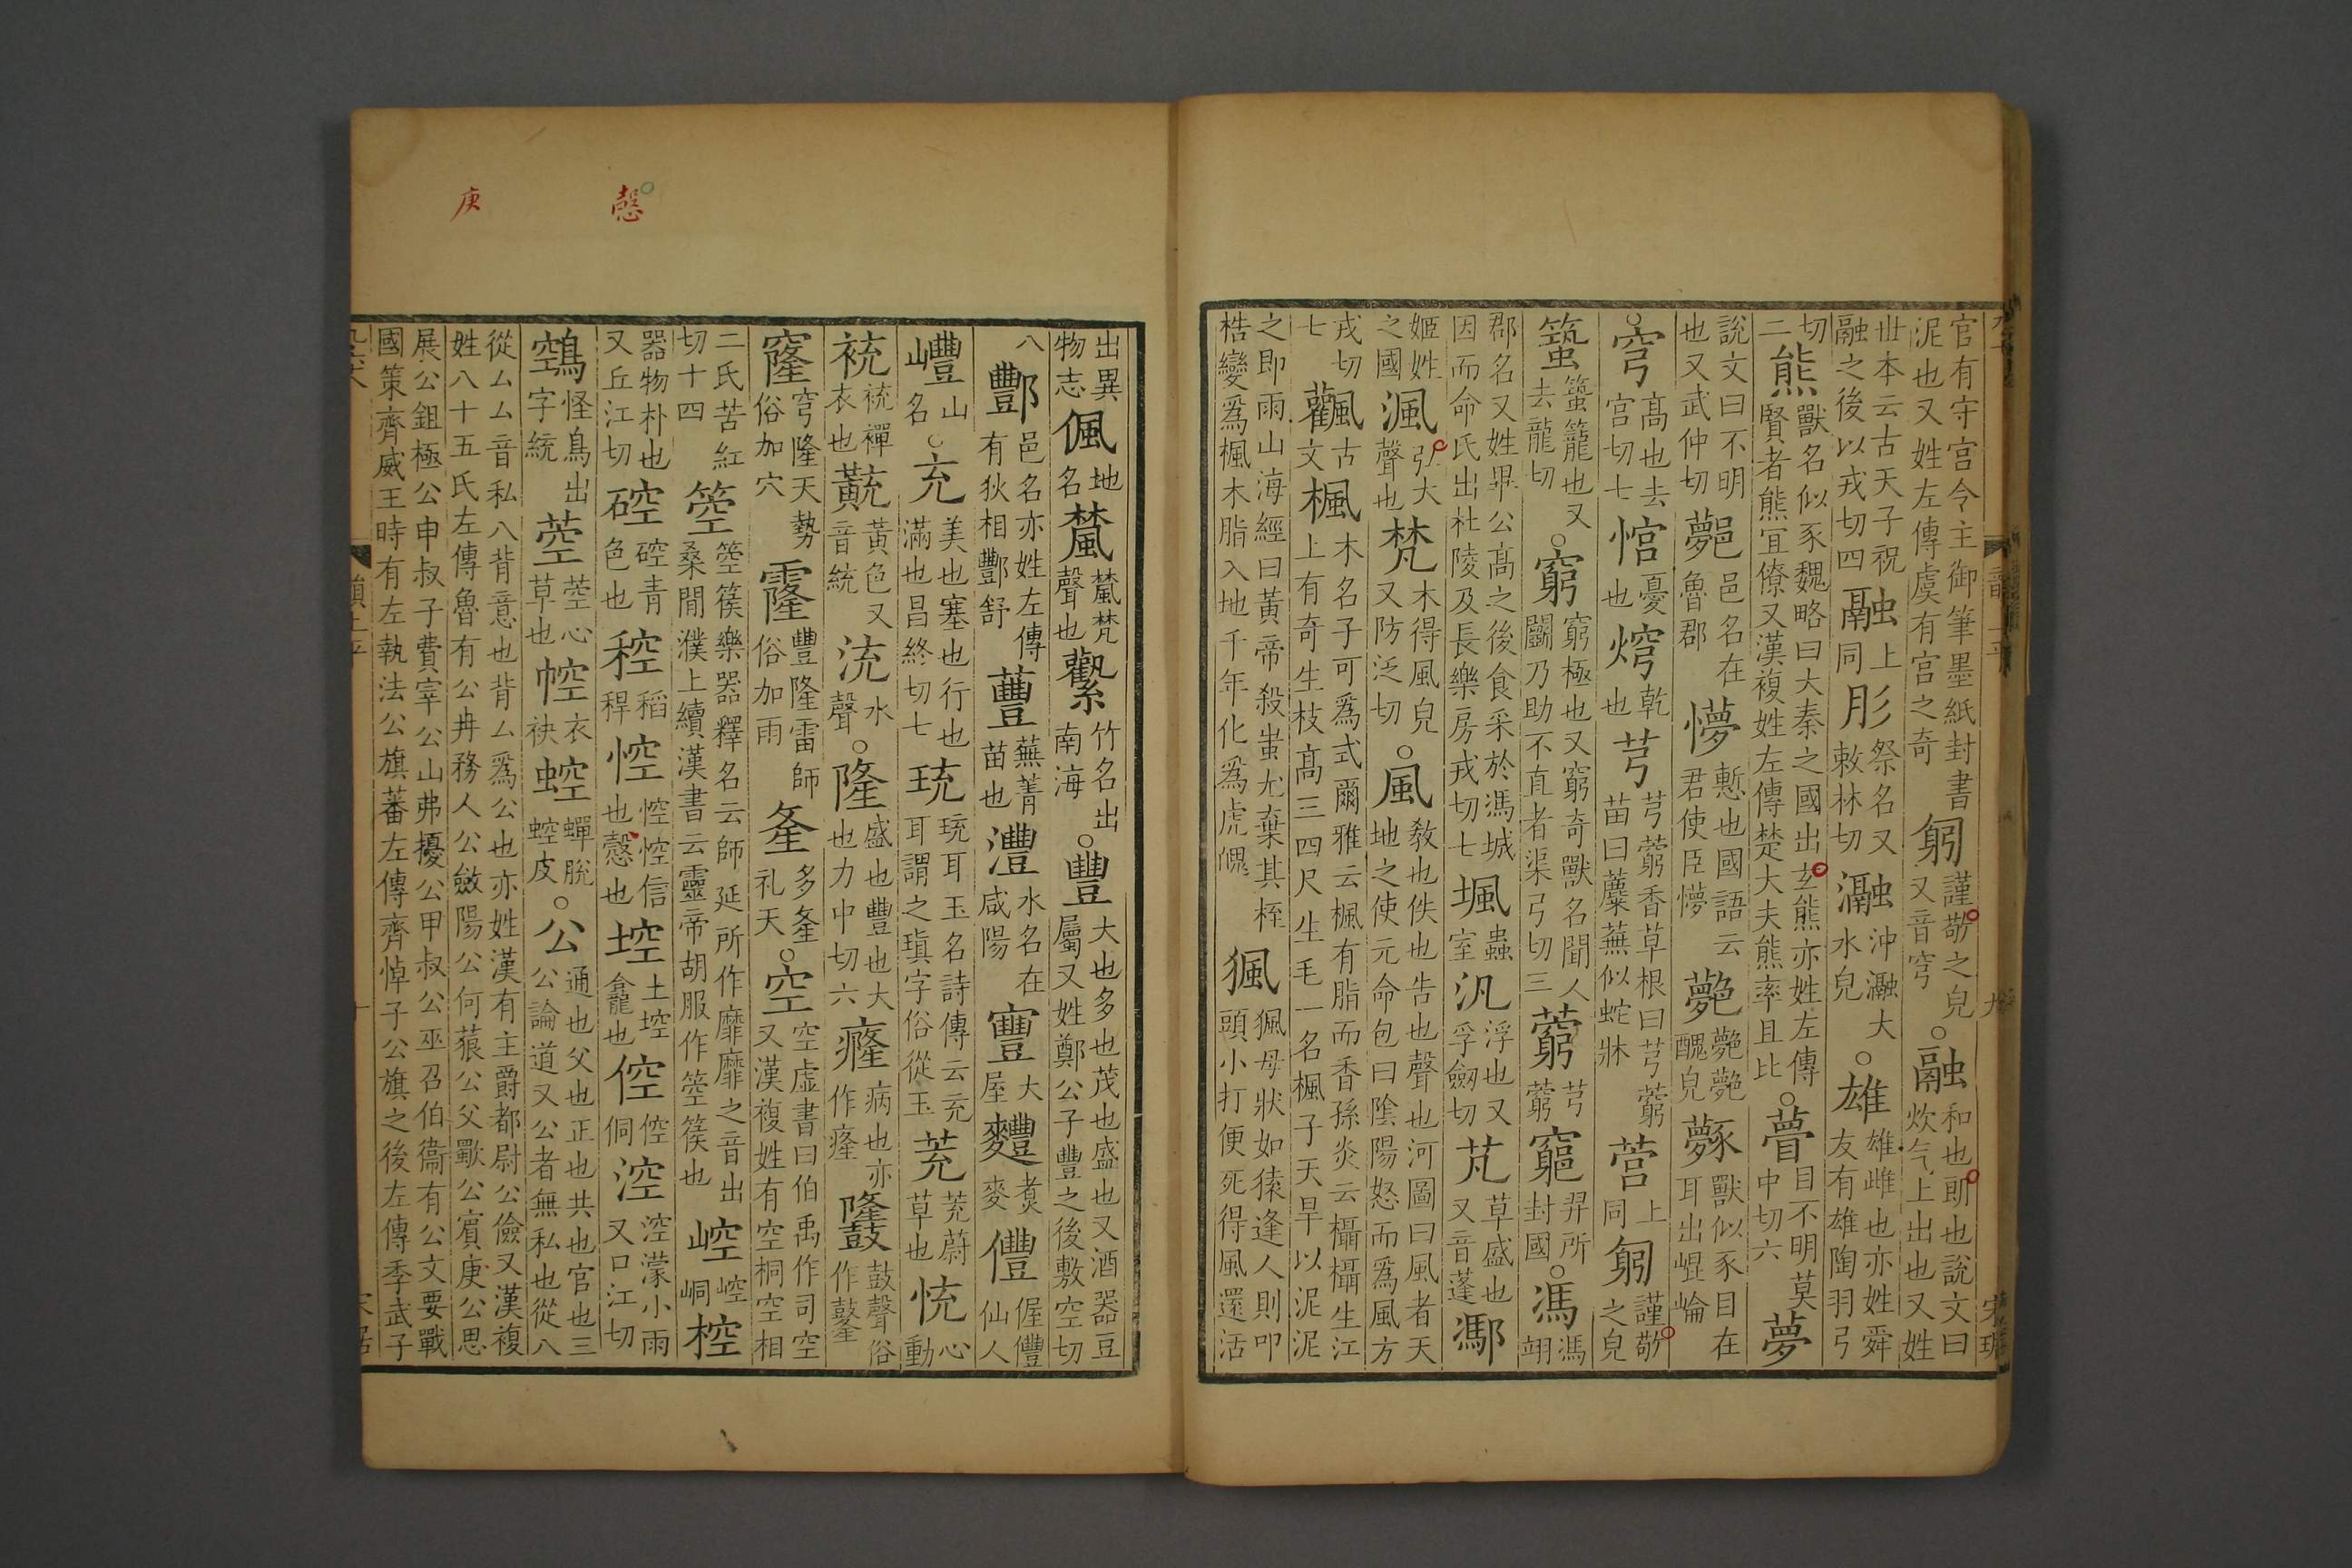 官有守宫令主御筆墨紙封書
泥也又姓左傳虞有宫之奇
躬謹敬之皃又音穹○融和也朗也說文曰炊气上出也又姓
世本云古天子祝融之後以戎切四
融上同
肜祭名又敕林切
瀜沖瀜大水皃○雄雄雌也亦姓舜友有雄陶羽弓
切二
熊獸名似豕魏略曰大秦之國出玄熊亦姓左傳賢者熊宜僚又漢複姓左傳楚大夫熊率且比○瞢目不明莫中切六
夢
說文曰不明也又武仲切
鄸邑名在魯郡
懜慙也國語云君使臣懜
夢夢醜皃
獸似豕目在耳出崐崘
○穹高也去宫切七
悺憂也
焪乾也
芎芎藭香草根曰芎藭苗曰蘪蕪似蛇牀
营上同
躬謹敬之皃
䖟䖟籠也又去龍切○窮窮極也又窮奇獸名聞人鬬乃助不直者渠弓切三
藭芎藭
竆羿所封國○馮馮翊
郡名又姓畢公高之後食采於馮城因而命氏出杜陵及長樂房戎切七
堸蟲室
汎浮也又孚劒切
芃草盛也又音蓬
鄸
姬姓之國
渢弘大聲也
梵木得風皃又防泛切○風敎也佚也告也聲也河圖曰風者天地之使元命包曰陰陽怒而爲風方
戎切七
飌古文
楓木名子可爲式爾雅云楓有脂而香孫炎云欇欇生江上有奇生枝高三四尺生毛一名楓子天旱以泥泥
之即雨山海經曰黃帝殺蚩尤棄其桎梏變爲楓木脂入地千年化爲虎魄
猦猦母狀如猿逢人則叩頭小打便死得風還活
出異物志
偑地名
檒檒梵聲也
蘩竹名出南海○豐大也多也茂也盛也又酒器豆屬又姓鄭公子豐之後敷空切
八
酆邑名亦姓左傳有狄相酆舒
蘴蕪菁苗也
灃水名在咸陽
寷大屋
麷煮麥
僼偓僼仙人
㠦山名○充美也塞也行也滿也昌終切七
珫珫耳玉名詩傳云充耳謂之瑱字俗從玉
茺茺蔚草也
忹心動
䘪䘪襌衣也
黈黃色又音統
流水聲○隆盛也豐也大也力中切六
癃病也亦作𤸇
鼓聲俗作鼕
窿穹隆天勢俗加穴
霳豐隆雷師俗加雨
夅多夅礼天○空空虛書曰伯禹作司空又漢複姓有空桐空相
二氏苦紅切十四
箜箜篌樂器釋名云師延所作靡靡之音出桑閒濮上續漢書云靈帝胡服作箜篌也
崆崆峒
椌
器物朴也又丘江切
硿硿青色也
稦稻稈
悾悾悾信也愨也
埪土埪龕也
倥倥侗
涳涳濛小雨又口江切
鵼怪鳥出字統
崆崆心草也
㤟衣袂
蛩蟬脫蛩皮○公通也父也正也共也官也三公論道又公者無私也從八
從厶厶音私八背意也背厶爲公也亦姓漢有主爵都尉公儉又漢複姓八十五氏左傳魯有公冉務人公斂陽公何藐公父歜公賓庚公思
展公鉏極公申叔子費宰公山弗擾公甲叔公巫召伯衞有公文要戰國策齊威王時有左執法公旗蕃左傳齊悼子公旗之後左傳季武子
愨
庚